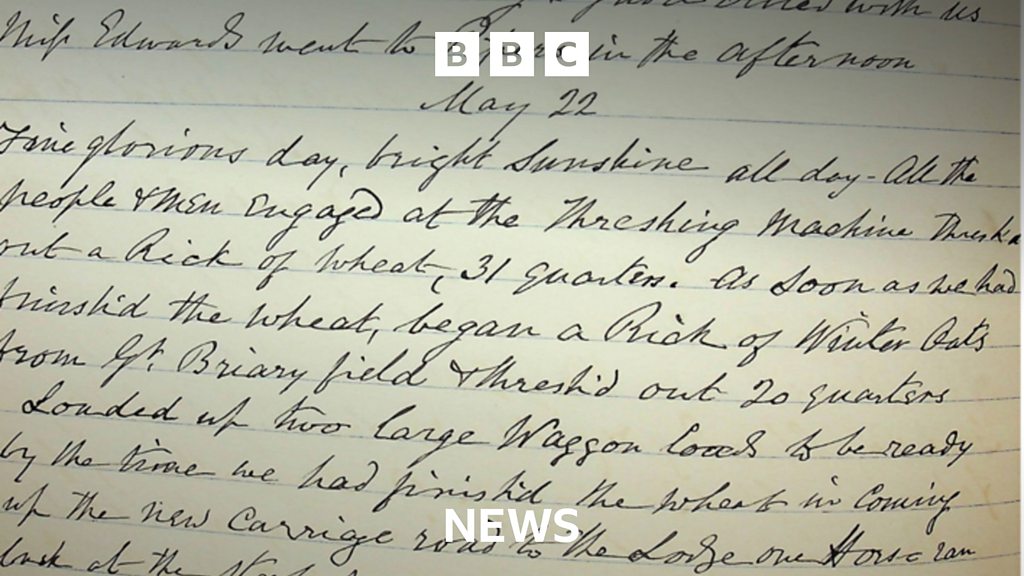 dined with us
Miss Edwards went to in the afternoon
BBC
May 22
Fine glorious day, bright Sunshine all day - All the
people & Men Engaged at the Threshing Machine Thresh'd
out a Rick of Wheat, 31 quarters. As soon as we had
finish'd the wheat, began a Rick of Winter Oats
from Gt. Briary field & thresh'd out 20 quarters
Loaded up two large Waggon loads to be ready
by the time we had finish'd the wheat in Coming
up the new Carrige road to the Lodge one Horse ran
NEWS
back at the